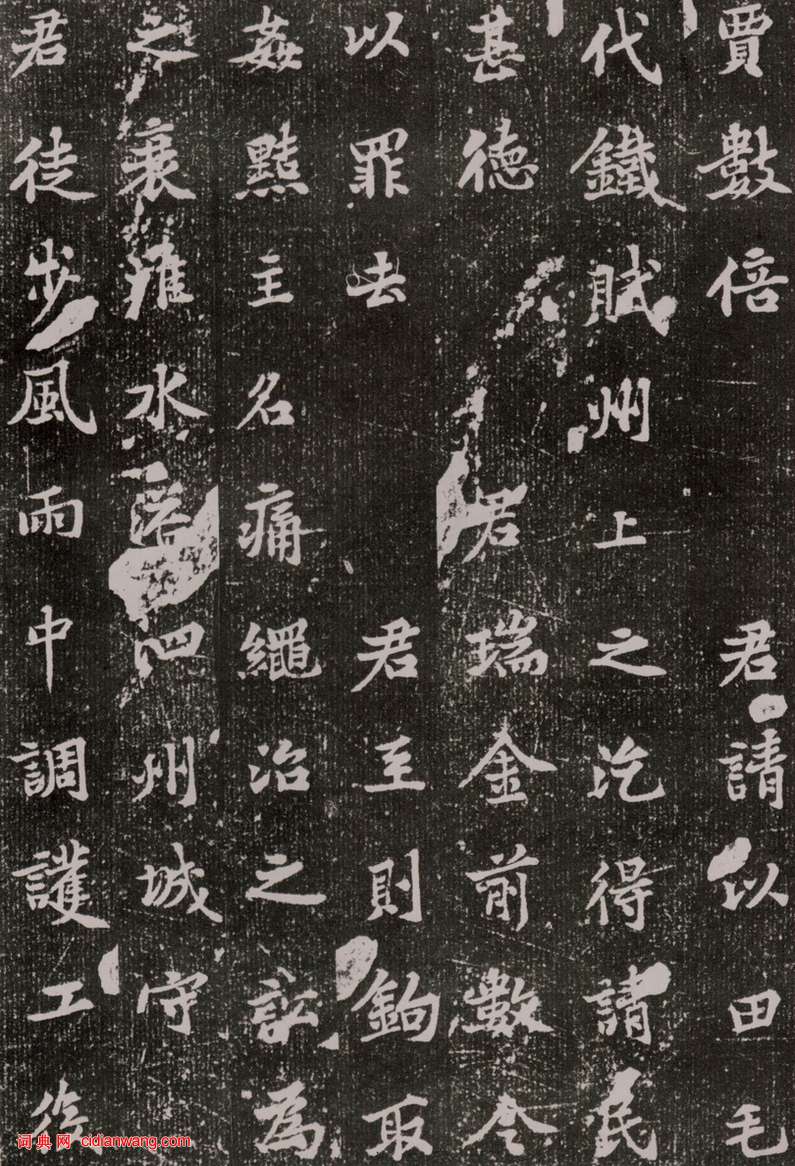 賈數倍 君請以田毛
代鐵賦州上之汔得請民
甚德 君瑞金前數令
以罪去 君至則鉤取
姦黠主名痛繩治之訖為
之衰淮水泗州城守
君徒步風雨中調護工
词典网 cidianwang.com